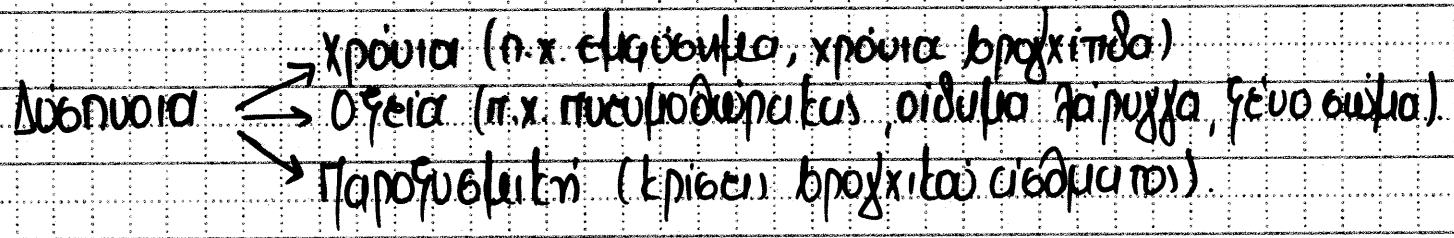 χρόνια (π.χ. εμφύσημα, χρόνια βρογχίτιδα)
Δύσπνοια → Οξεία (π.χ. πνευμοθώρακας, οίδημα λάρυγγα, ξένο σώμα).
Παροξυσμική (κρίσεις βρογχικού άσθματος).